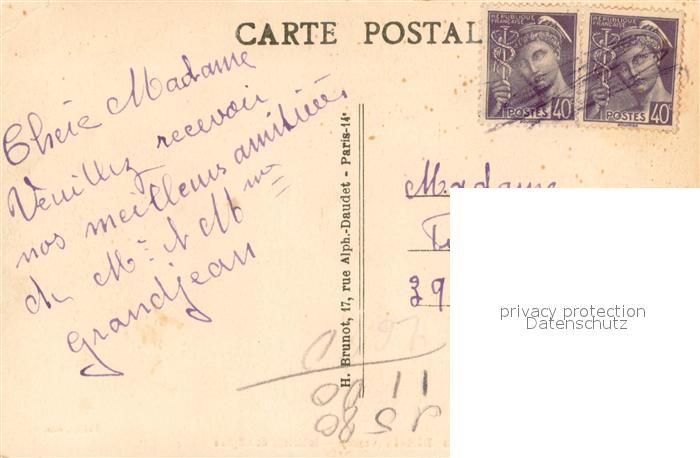 CARTE POSTAL
RÉPUBLIQUE FRANÇAISE
POSTES 40
RÉPUBLIQUE FRANÇAISE
POSTES 40
Chère Madame
Veuillez recevoir
nos meilleurs amitiées
de Mr & Mme
Grandjean
H. Brunot, 17, rue Alph.-Daudet - Paris-14e
Madame
39
privacy protection
Datenschutz
11 00